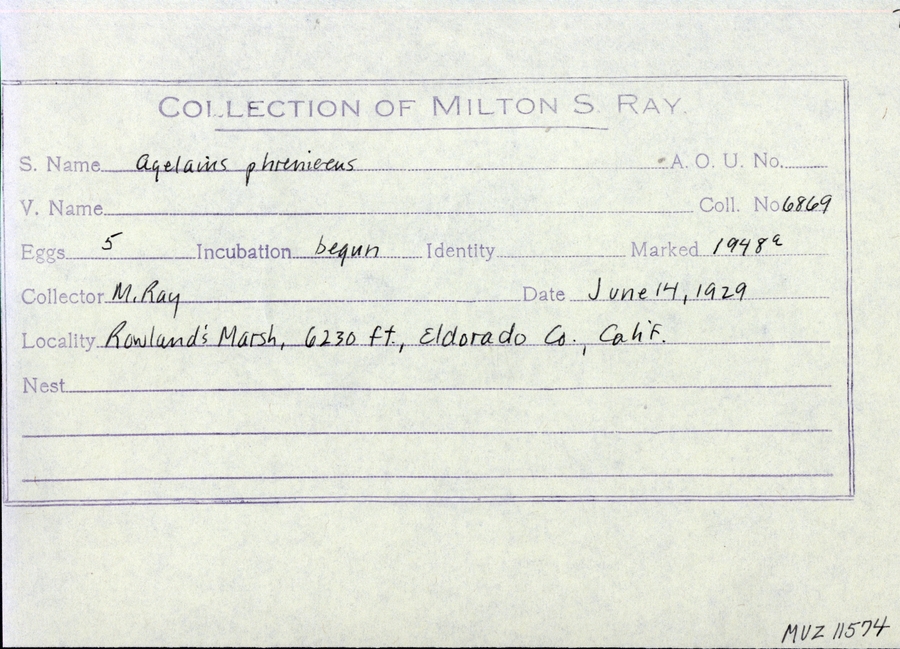 COLLECTION OF MILTON S. RAY.
S. Name Agelaius phoeniceus A. O. U. No.
V. Name Coll. No 6869
Eggs 5 Incubation begun Identity Marked 1948a
Collector M. Ray Date June 14, 1929
Locality Rowland's Marsh, 6230 ft., Eldorado Co., Calif.
Nest
MVZ 11574